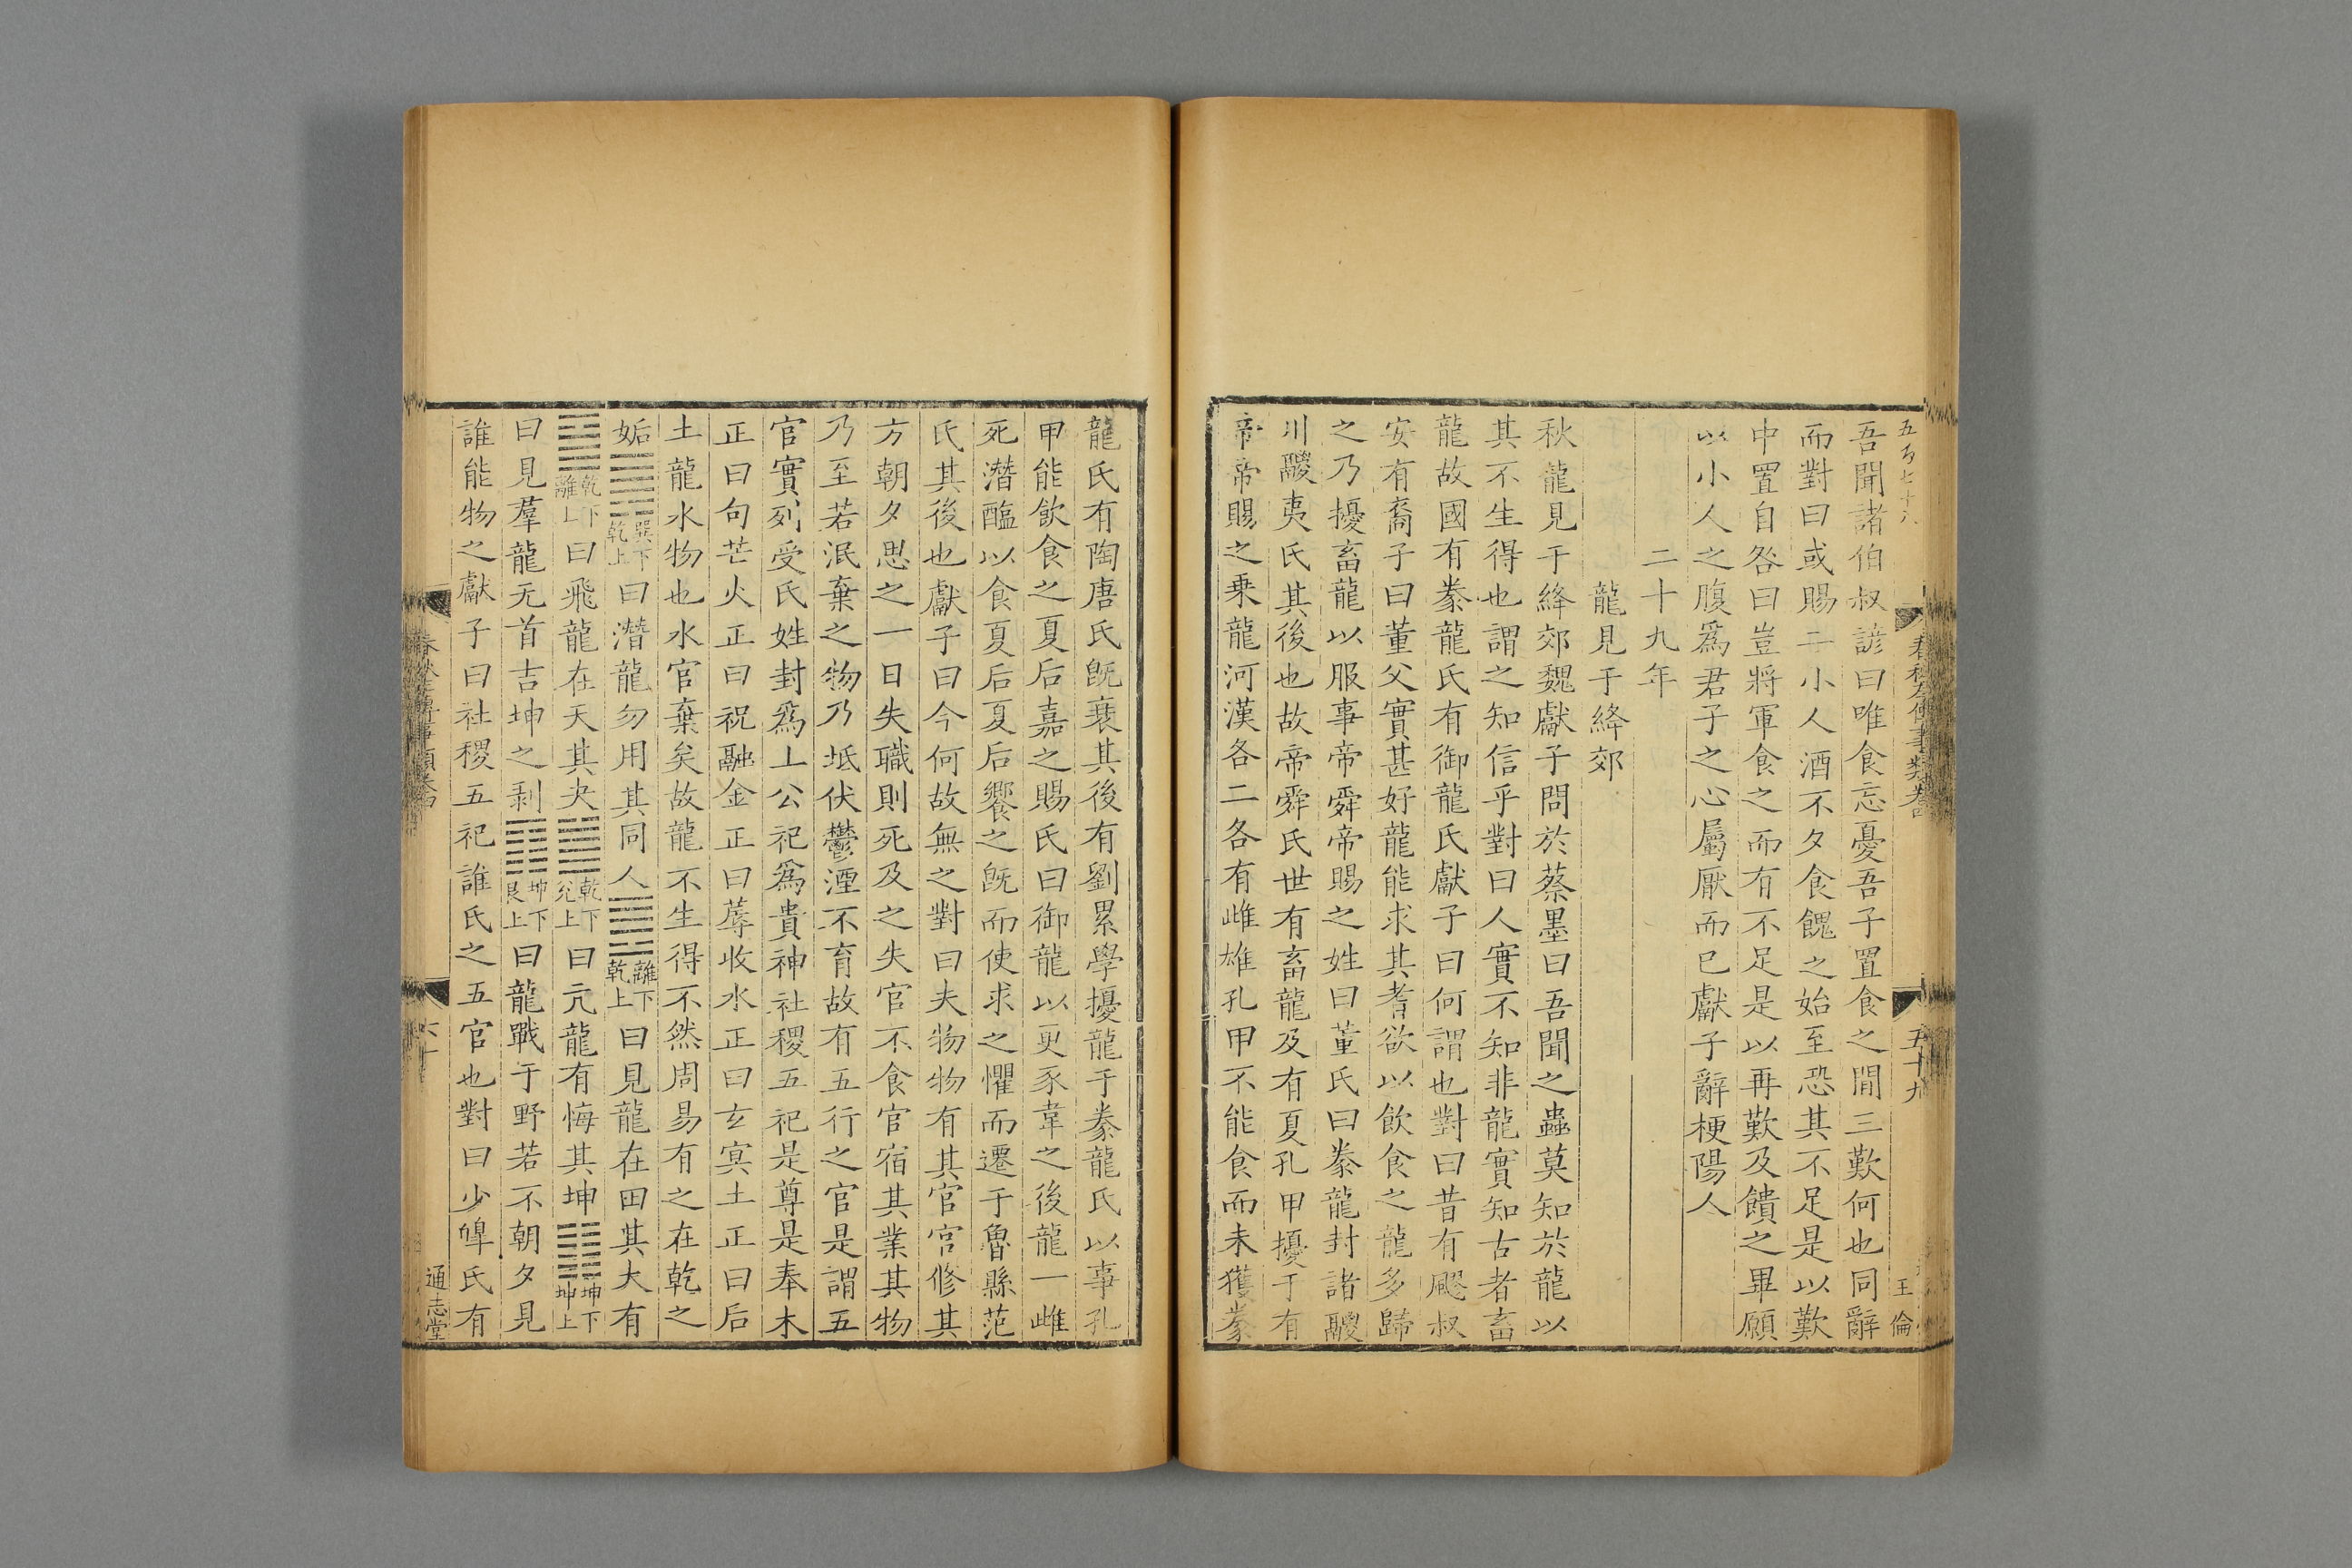 五百七十八
吾聞諸伯叔諺曰唯食忘憂吾子置食之間三歎何也同辭
而對曰或賜二小人酒不夕食饑之始至恐其不足是以歎
中置自咎曰豈將軍食之而有不足是以再歎及饋之畢願
以小人之腹爲君子之心屬厭而已獻子辭梗陽人
二十九年
龍見于絳郊
秋龍見于絳郊魏獻子問於蔡墨曰吾聞之蟲莫知於龍以
其不生得也謂之知信乎對曰人實不知非龍實知古者畜
龍故國有豢龍氏有御龍氏獻子曰何謂也對曰昔有飂叔
安有裔子曰董父實甚好龍能求其耆欲以飲食之龍多歸
之乃擾畜龍以服事帝舜帝賜之姓曰董氏曰豢龍封諸鬷
川鬷夷氏其後也故帝舜氏世有畜龍及有夏孔甲擾于有
帝帝賜之乗龍河漢各二各有雌雄孔甲不能食而未獲豢
春秋左傳事類卷四
五十九
王倫
龍氏有陶唐氏旣衰其後有劉累學擾龍于豢龍氏以事孔
甲能飲食之夏后嘉之賜氏曰御龍以更豕韋之後龍一雌
死潛醢以食夏后夏后饗之旣而使求之懼而遷于魯縣范
氏其後也獻子曰今何故無之對曰夫物物有其官官修其
方朝夕思之一日失職則死及之失官不食官宿其業其物
乃至若泯棄之物乃坻伏鬱湮不育故有五行之官是謂五
官實列受氏姓封爲上公祀爲貴神社稷五祀是尊是奉木
正曰句芒火正曰祝融金正曰蓐收水正曰玄冥土正曰后
土龍水物也水官棄矣故龍不生得不然周易有之在乾之
姤巽下乾上曰潛龍勿用其同人離下乾上曰見龍在田其大有
乾下離上曰飛龍在天其夬乾下兌上曰亢龍有悔其坤坤下坤上
曰見羣龍无首吉坤之剥坤下艮上曰龍戰于野若不朝夕見
誰能物之獻子曰社稷五祀誰氏之五官也對曰少皥氏有
六十
通志堂